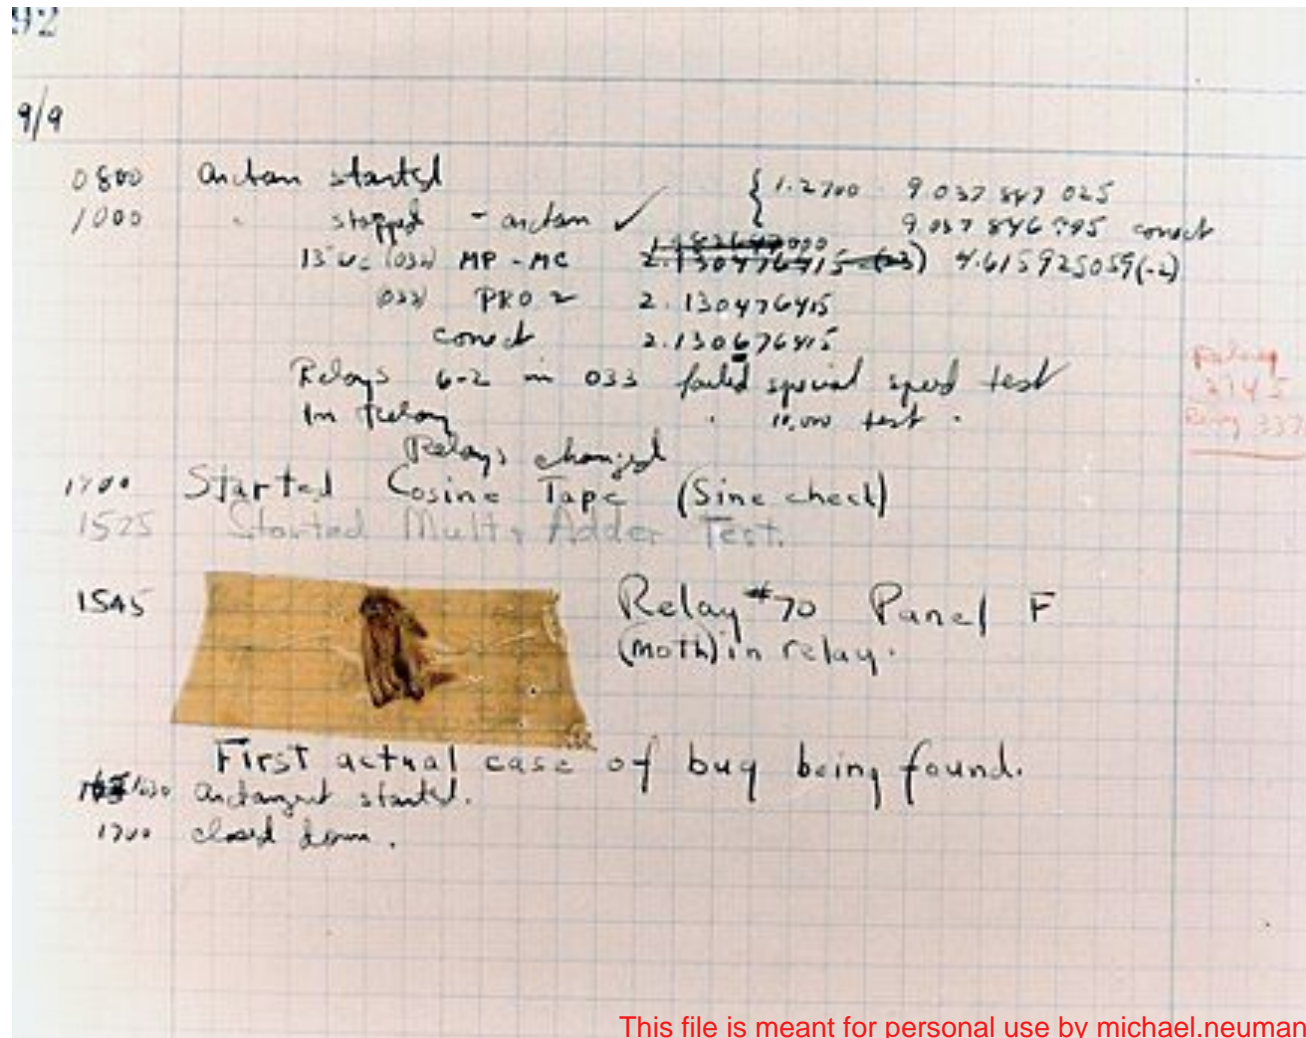 92
9/9
0800 Antan started
1000 " stopped - antan ✓ { 1.2700 9.037 847 025
9.037 846 995 correct
13"uc (032) MP - MC 2.130476415 (-3) 4.615925059(-2)
(033) PRO 2 2.130476415
correct 2.130676415
Relays 6-2 in 033 failed special speed test
In Relay " 10,000 test .
Relay
2145
Relay 337
Relays changed
1700 Started Cosine Tape (Sine check)
1525 Started Mult + Adder Test.
1545 Relay #70 Panel F
(moth) in relay.
First actual case of bug being found.
1630 Antangent started.
1700 closed down.
This file is meant for personal use by michael.neuman